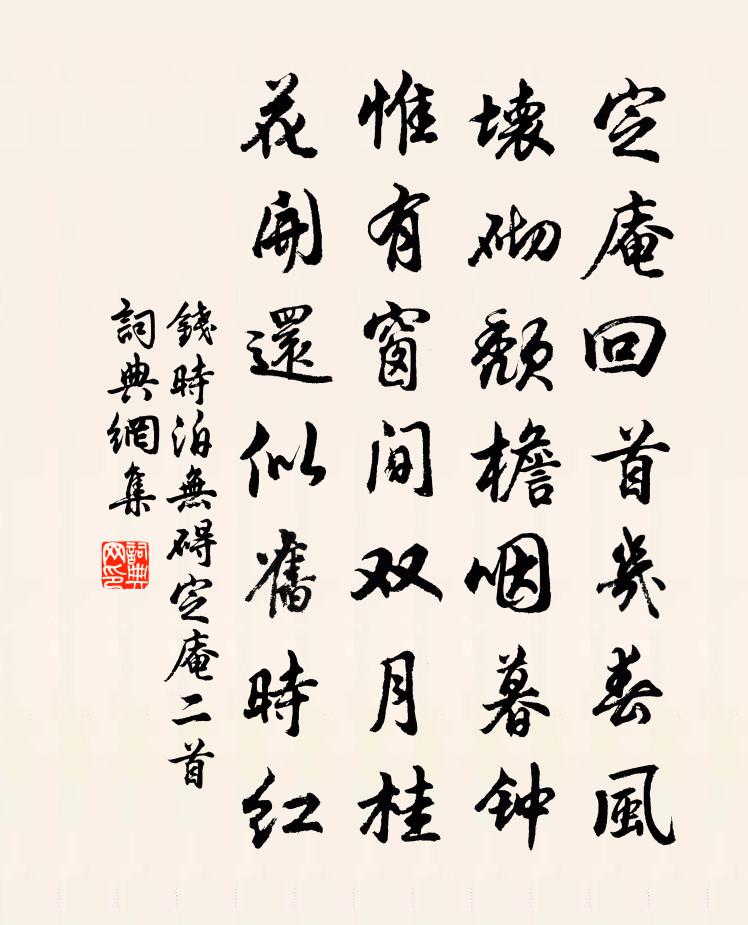 定庵回首幾春風
壊砌颓檐咽暮钟
惟有窗间双月桂
花開還似舊時红
錢時泊無碍定庵二首
詞典網集
詞典网印